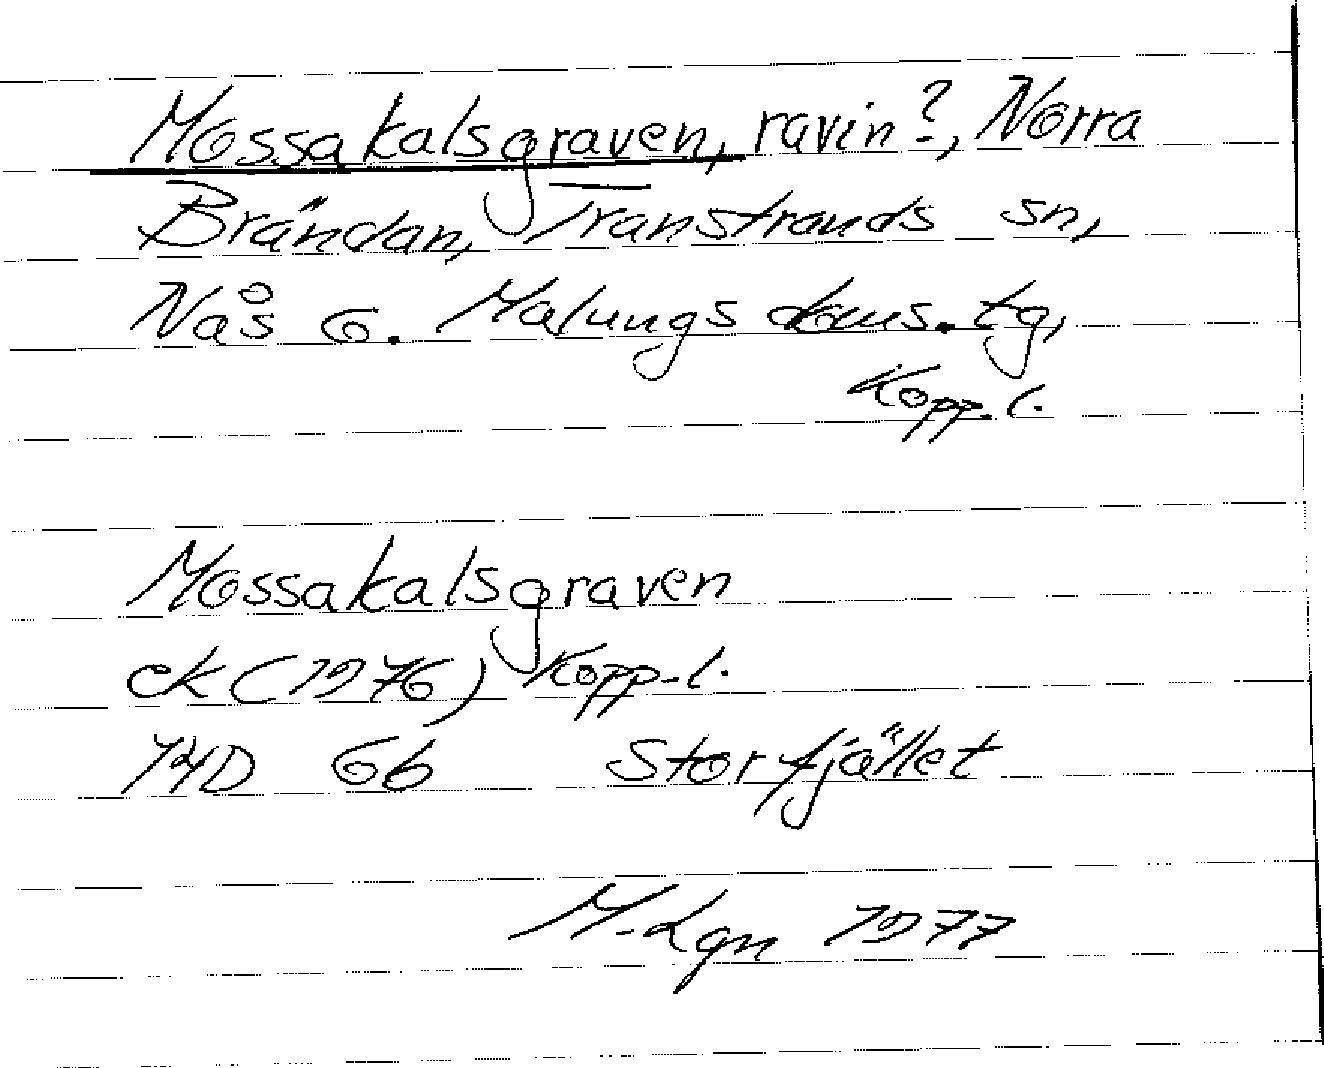 Mossakalsgraven, ravin?, Norra
Brändan, Transtrands sn,
Nås o. Malungs doms. tg,
Kopp. l.
Mossakalsgraven
ek (1976) Kopp. l.
14D 6b Storfjället
M. Lgn 1977